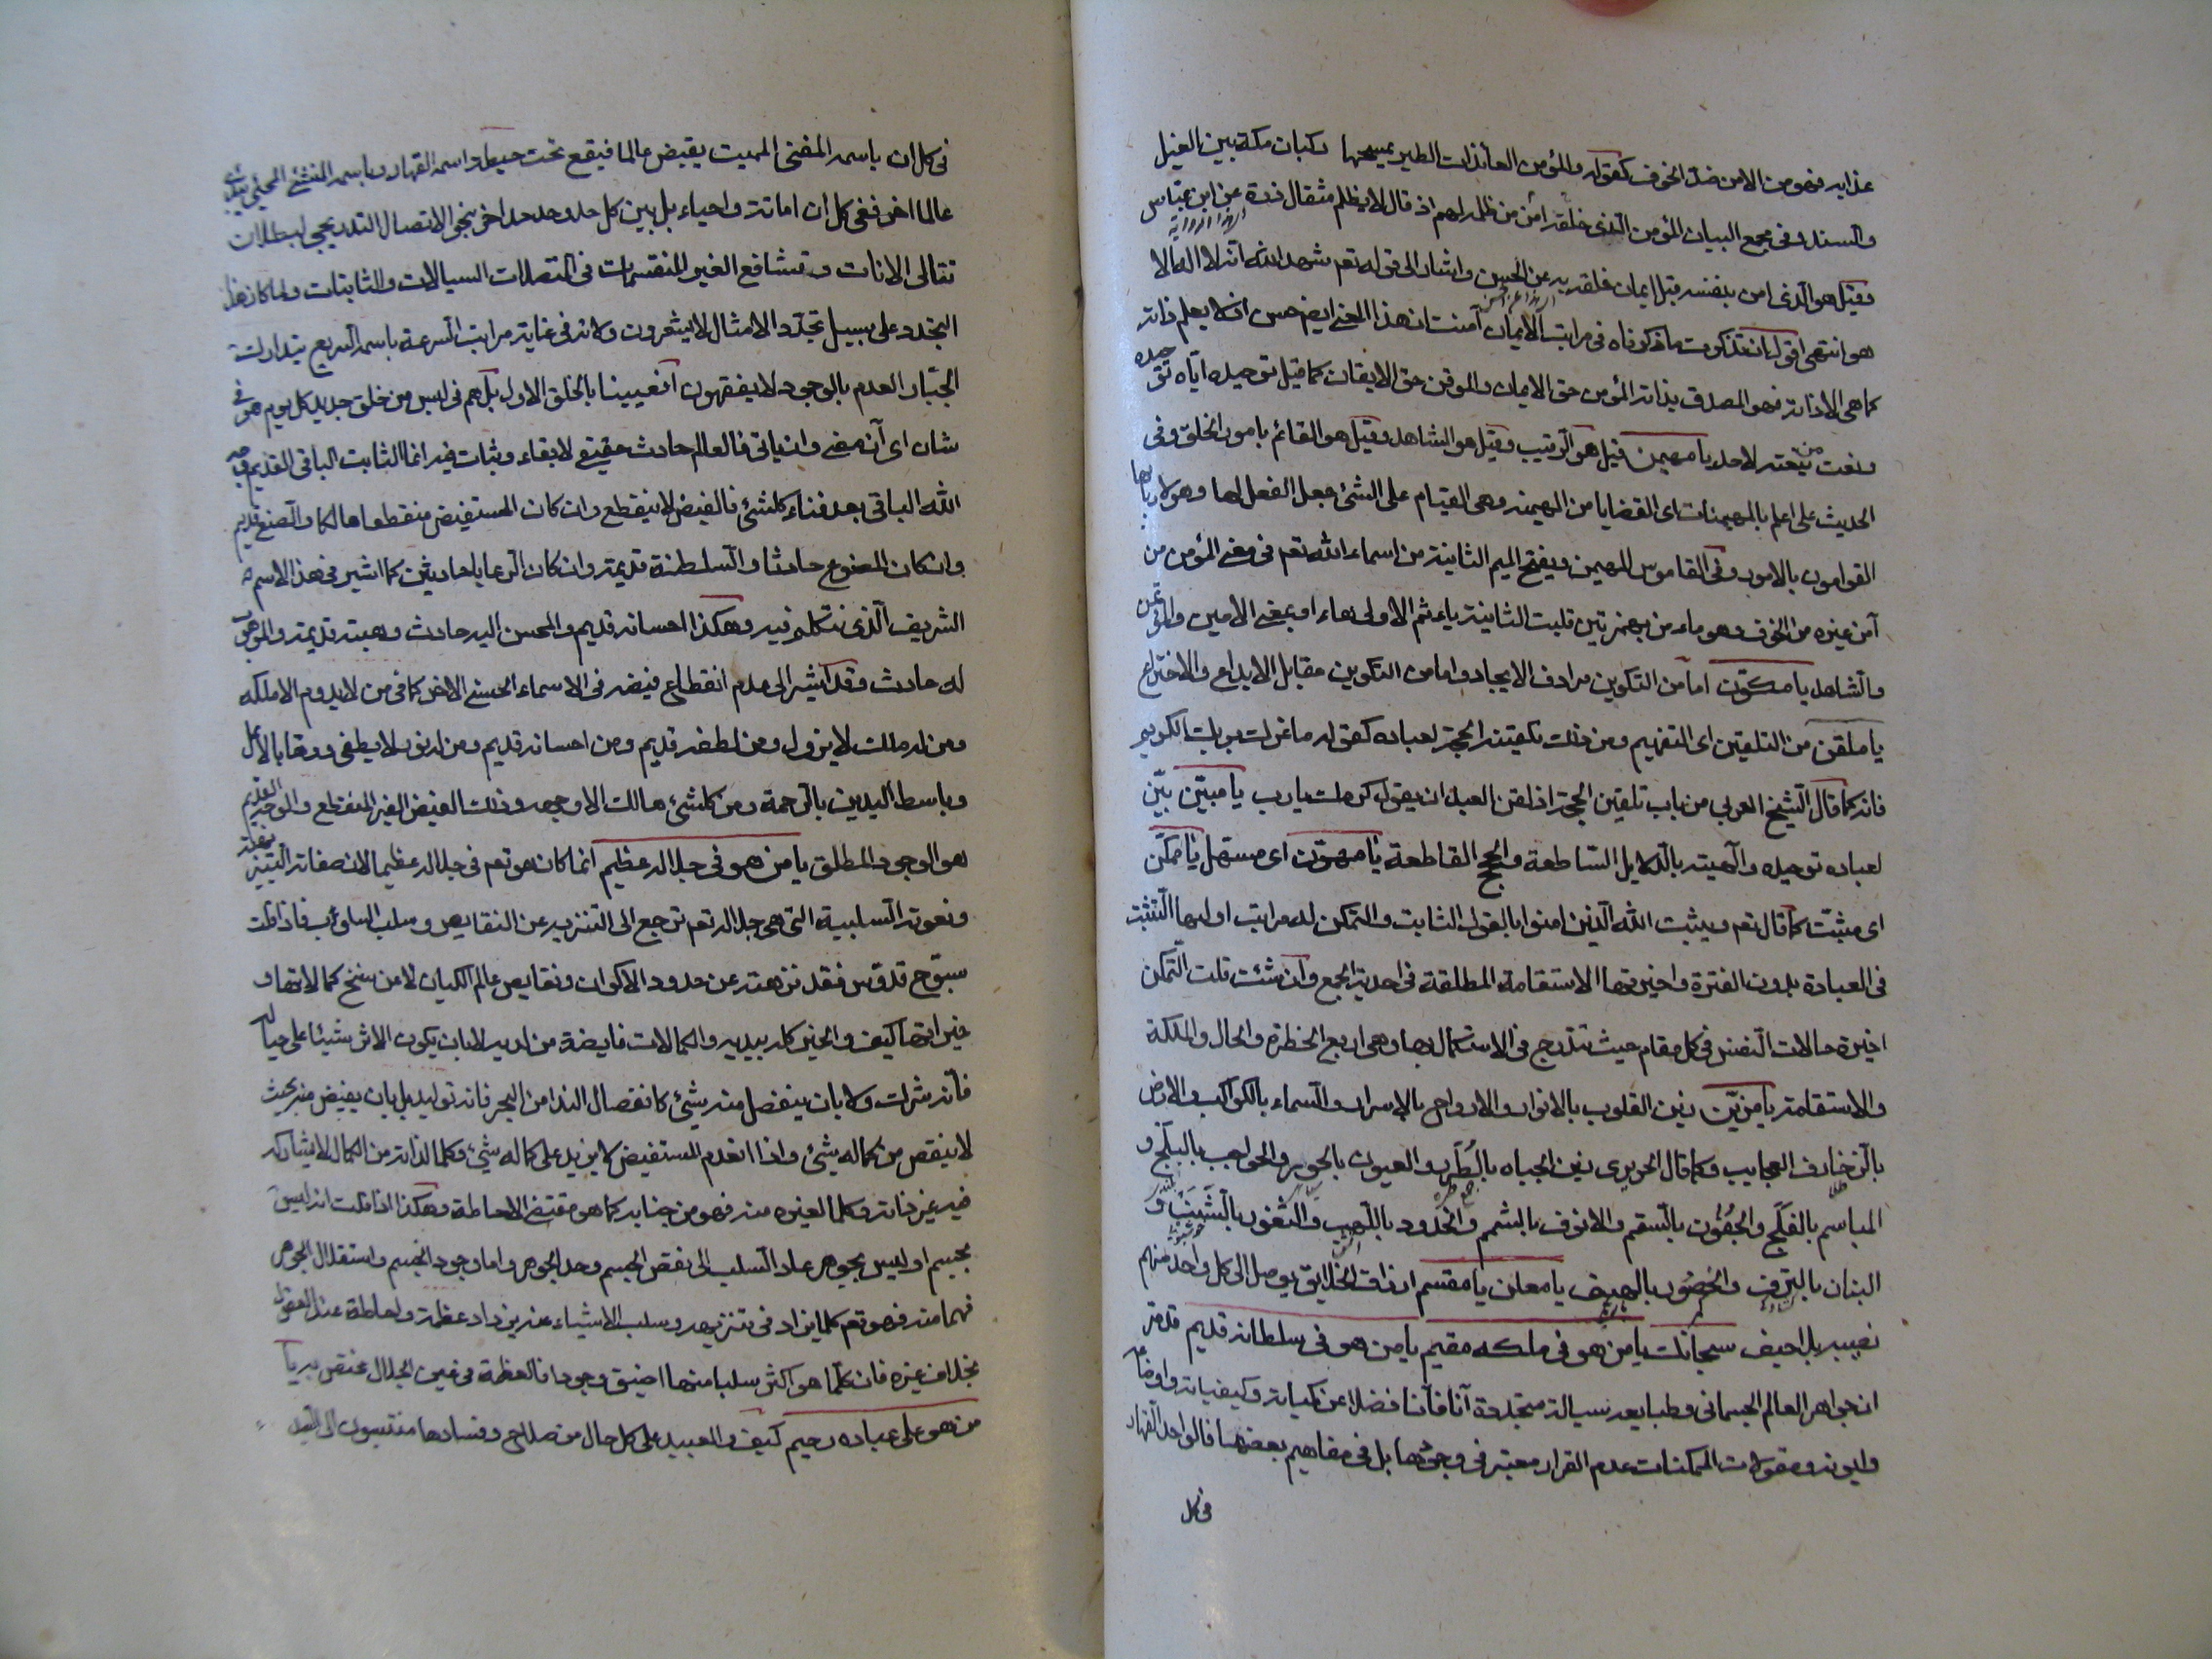 عذابه فهو من الامن ضد الخوف كقوله والمؤمن العائذات الطير يمسحها ركبان مكة بين الغيل
والسند وفى مجمع البيان المؤمن الذى خلقه امن من ظلمه لهم اذ قال لا يظلم مثقال ذرة عن ابن عباس
وقيل هو الذى امن بنفسه قبل ايمان خلقه به عن الحسن واشار الى قوله تعم شهد الله انه لا اله الا
هو انتهى اقول ان تذكرت ما ذكرناه فى مراتب الايمان آمنت ان هذا المعنى ايض حسن اذ لا يعلم ذاته
كما هى الا ذاته فهو المصدق بذاته المؤمن حق الايمان والموقن حق الايقان كما قيل توحيده اياه توحيده
ونعت من ينعته لاحد يا مهيمن قيل هو الرقيب وقيل هو الشاهد وقيل هو القائم بامور الخلق وفى
الحديث على اعلم بالمهيمنات اى القضايا من الهيمنه وهى القيام على الشئ جعل الفعل لها وهو لاربابها
القوامون بالامور وفى القاموس المهيمن ويفتح الميم الثانية من اسماء الله تعم فى معنى المؤمن من
آمن غيره من الخوف وهو مامن بهمزتين قلبت الثانية ياء ثم الاولى هاء او بمعنى الامين والمؤتمن
والشاهد يا مكون اما من التكوين مرادف الايجاد واما من التكوين مقابل الابداع والاختراع
يا ملقن من التلقين اى التفهيم ومن ذلك تلقينه الحجة لعباده كقوله ما غرك بربك الكريم
فانه كما قال الشيخ العربى من باب تلقين الحجة اذ لقن العبد ان يقول كرمك يا رب يا مبين بين
لعباده توحيده والهيته بالدلايل الساطعة والحجج القاطعة يا مهون اى مسهل يا ممكن
اى مثبت كما قال تعم ويثبت الله الذين امنوا بالقول الثابت والتمكن له مراتب اولها التثبت
فى العبادة بدون الفترة واخيرتها الاستقامة المطلقة فى احدية الجمع وان شئت قلت التمكن
اخيرة حالات النفس فى كل مقام حيث تتدرج فى الاستكمال بها وهى اربع الخطرة والحال والملكة
والاستقامة يا مزين زين القلوب بالانوار والارواح بالاسرار والسماء بالكواكب والارض
بالزخارف العجايب وكما قال الحريرى زين الجباه بالطرر والعيون بالحور والحواجب بالبلج و
المباسم بالفلج والجفون بالسقم والانوف بالشمم والخدود باللهب والثغور بالشنب و
البنان بالترف والخصور بالهيف يا معلن يا مقسم ارزاق الخلايق يوصل الى كل واحد منهم
نصيبه بلا حيف سبحانك يا من هو فى ملكه مقيم يا من هو فى سلطانه قديم قد مر
ان جواهر العالم الجسمانى وطبايعه سيالة متجددة آنا فآنا فضلا عن كمياته وكيفياته واوضاعه
وايونه ومقولات الممكنات عدم القرار معتبر فى وجودها بل فى مفاهيم بعضها فالواحد القهار
فى كل
فى كل ان باسمه المفنى المميت يقبض عالما فيقع تحت حيطة اسمه القهار وباسمه المنشئ المحيى يبدئ
عالما اخر ففى كل ان اماتة واحياء بل بين كل حد وحد حد اخر بنحو الاتصال التدريجى لبطلان
تتالى الانات وتشافع الغير المنقسمات فى المتصلات السيالات والثابتات ولما كان هذا
التجدد على سبيل تجدد الامثال لا يشعرون ولانه فى غاية مراتب السرعة باسمه السريع يتدارك
الجبار العدم بالوجود لا يفقهون افعيينا بالخلق الاول بل هم فى لبس من خلق جديد كل يوم هو فى
شان اى آن مضى وان ياتى فالعالم حادث حقيقى لا بقاء وثبات فيه انما الثابت الباقى القديم وجه
الله الباقى بعد فناء كلشئ فالفيض لا ينقطع وان كان المستفيض منقطعا هالكا والصنع قديم
وان كان المصنوع حادثا والسلطنة قديمة وان كان الرعايا حادثين كما اشير فى هذا الاسم
الشريف الذى نتكلم فيه وهكذا احسانه قديم والمحسن اليه حادث وهبته قديمة والموهوب
له حادث وقد اشير الى عدم انقطاع فيضه فى الاسماء الحسنى الاخر كما فى من لا يدوم الا ملكه
ومن له ملك لا يزول ومن لطفه قديم ومن احسانه قديم ومن له نور لا يطفى
وباسط اليدين بالرحمة ومن كلشئ هالك الا وجهه وذلك الفيض الغير المنقطع والوجه القديم
هو الوجود المطلق يا من هو فى جلاله عظيم انما كان هو تعم فى جلاله عظيما لان صفاته
ونعوته السلبية التى هى جلاله تعم ترجع الى التنزيه عن النقايص وسلب السلوب فاذا قلت
سبوح قدوس فقد نزهته عن حدود الاكوان ونقايص عالم الكيان لا من سنخ كمالاتها و
خيراتها كيف والخير كله بيديه والكمالات فايضة من لديه لا بان يكون الاثر شيئا على حياله
فانه شرك ولا بان ينفصل منه شئ كانفصال الندا من البحر فانه توليد بل بان يفيض منه بحيث
لا ينقص من كماله شئ واذا انعدم المستفيض لا يزيد على كماله شئ وكلما لذاته من الكمال لا يشاركه
فيه غير ذاته وكلما لغيره منه فهو من جنابه كما هو مقتضى الاحاطة وهكذا اذا قلت انه ليس
بجسم او ليس بجوهر عاد السلب الى نقص الجسم وحد الجوهر واما وجود الجسم واستقلال الجوهر
فهما منه فهو تعم كلما يزاد فى تنزيهه وسلب الاشياء عنه يزداد عظمة واحاطة عند العقول
بخلاف غيره فان كلما هو اكثر سلبا منها اضيق وجودا فالعظمة فى عين الجلال مختص به يا
من هو على عباده رحيم كيف والعبيد على كل حال من صلاح وفسادها منتسبون الى السيد